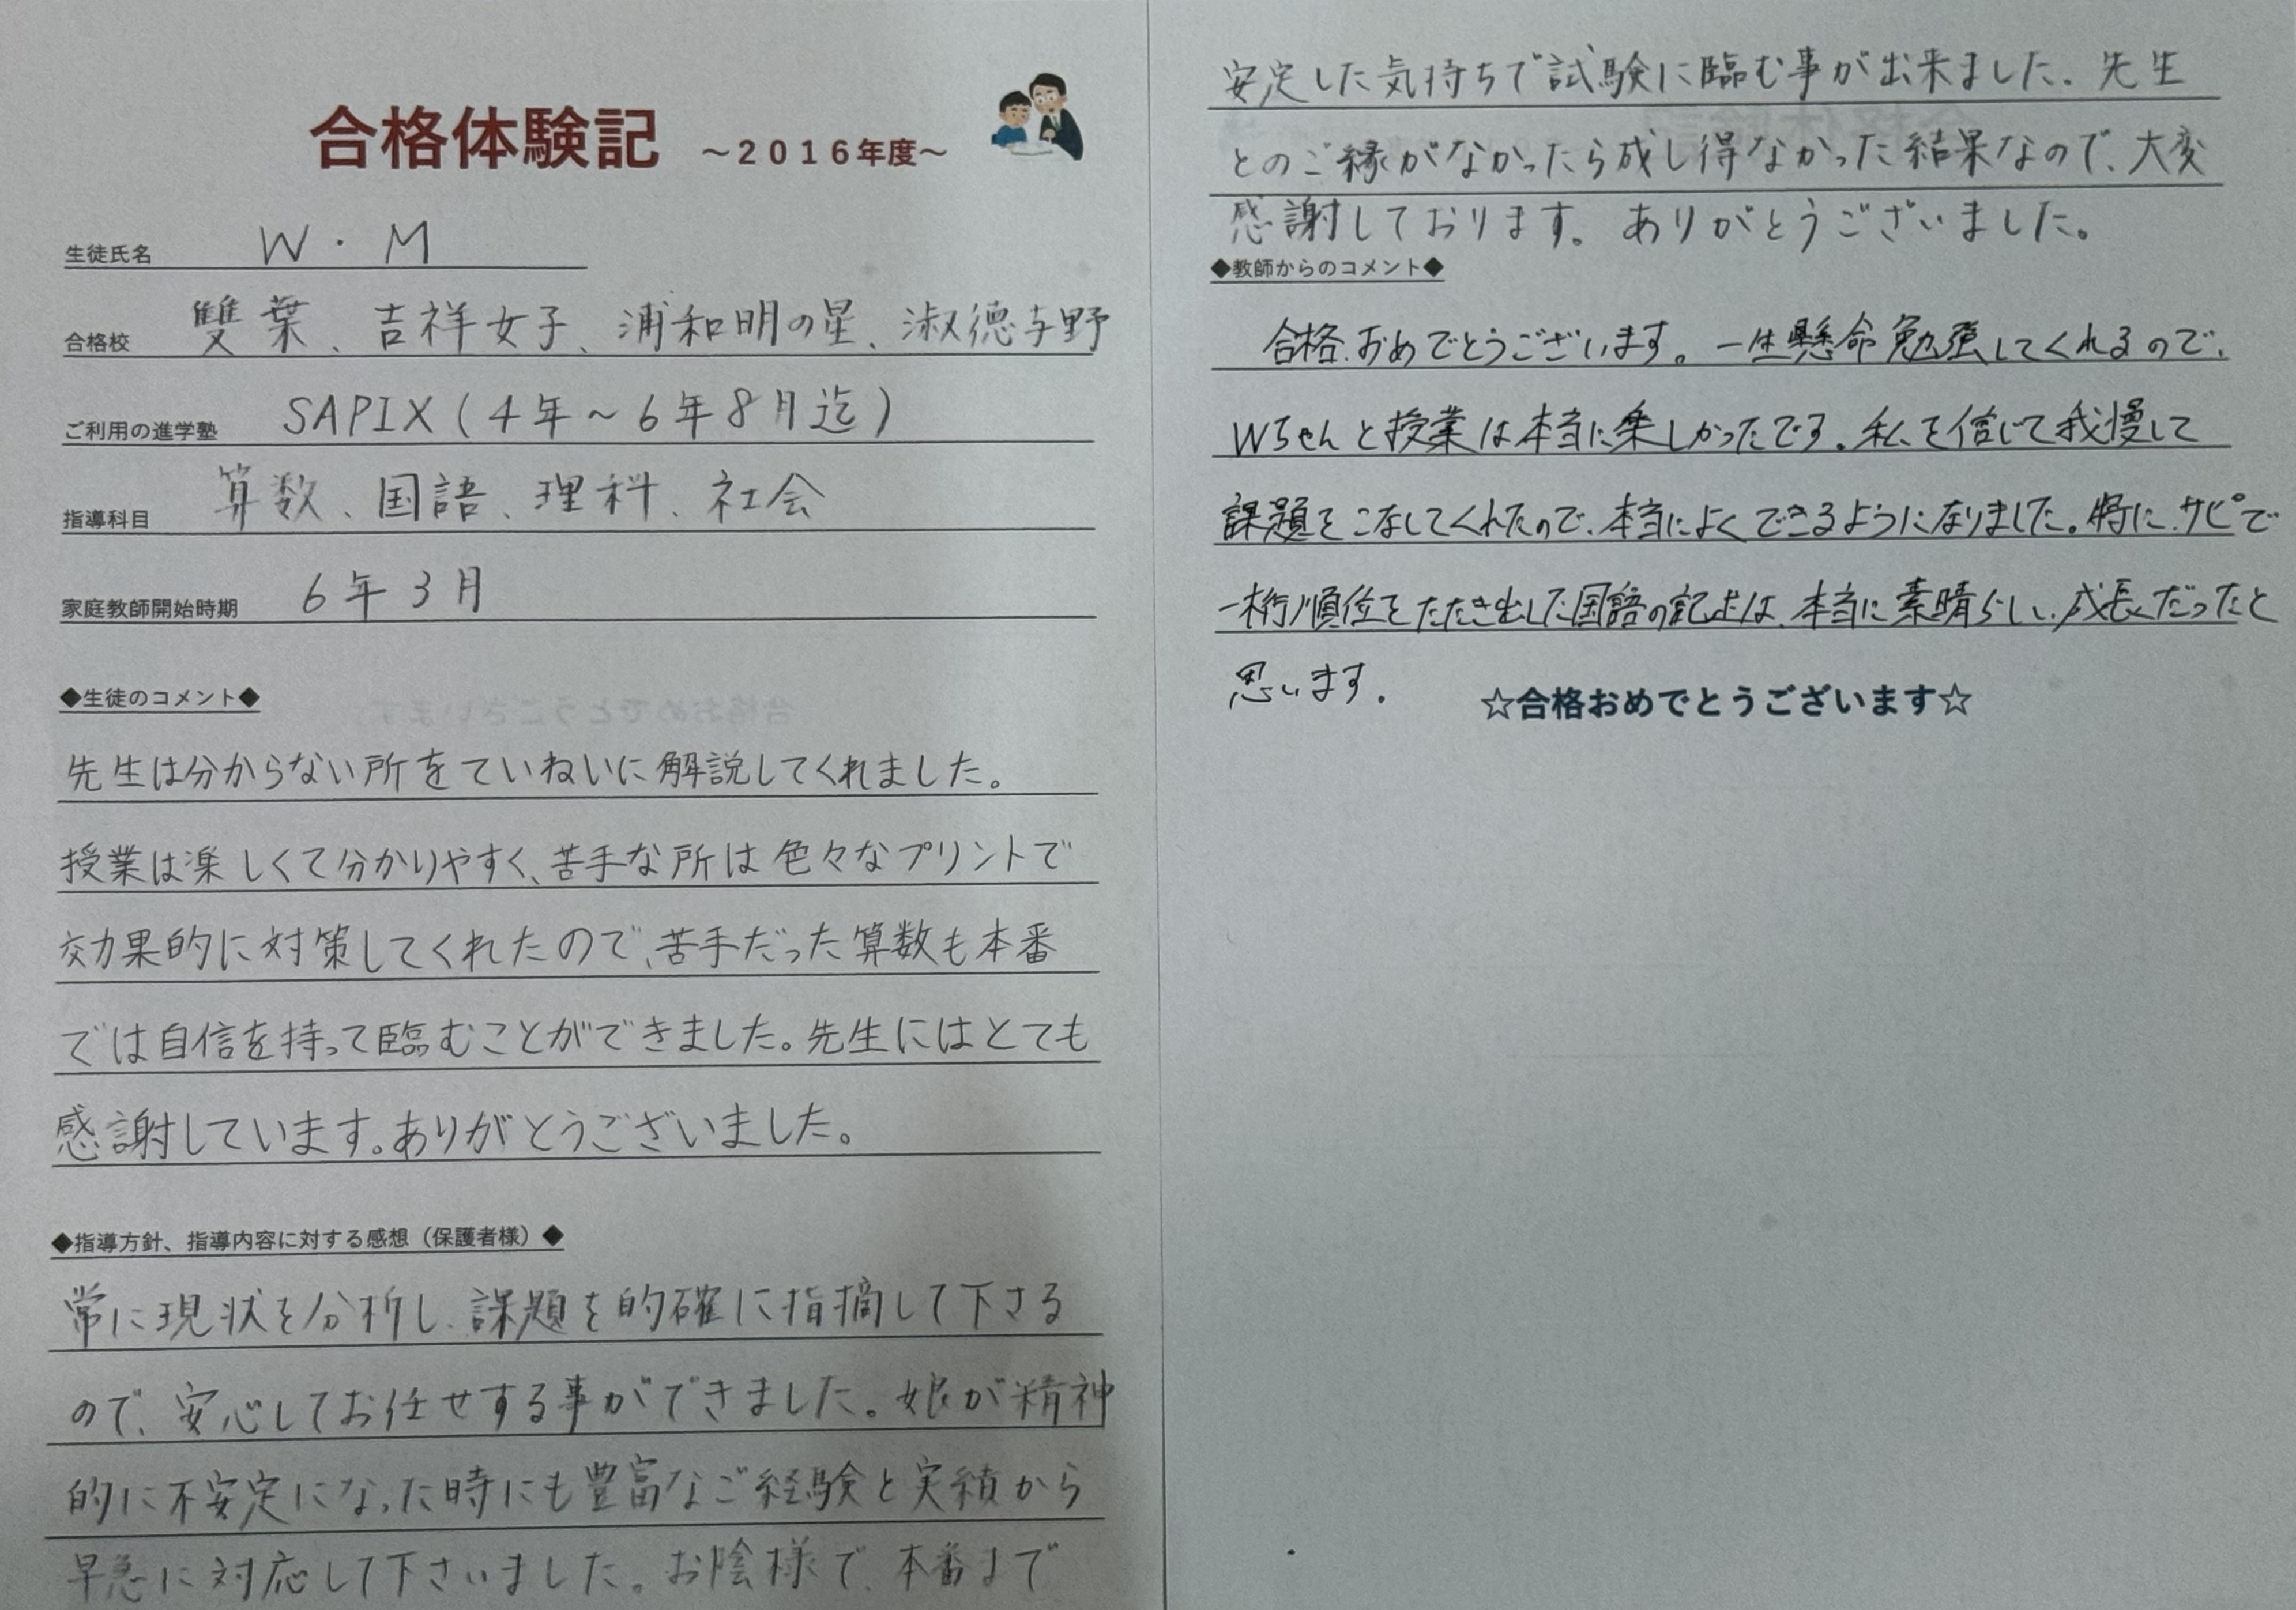 合格体験記 ～２０１６年度～
生徒氏名 W・M
合格校 雙葉、吉祥女子、浦和明の星、淑徳与野
ご利用の進学塾 SAPIX(4年～6年8月迄)
指導科目 算数、国語、理科、社会
家庭教師開始時期 6年3月
◆生徒のコメント◆
先生は分からない所をていねいに解説してくれました。
授業は楽しくて分かりやすく、苦手な所は色々なプリントで
効果的に対策してくれたので、苦手だった算数も本番
では自信を持って臨むことができました。先生にはとても
感謝しています。ありがとうございました。
◆指導方針、指導内容に対する感想（保護者様）◆
常に現状を分析し、課題を的確に指摘して下さる
ので、安心してお任せする事ができました。娘が精神
的に不安定になった時にも豊富なご経験と実績から
早急に対応して下さいました。お陰様で、本番まで
安定した気持ちで試験に臨む事が出来ました。先生
とのご縁がなかったら成し得なかった結果なので、大変
感謝しております。ありがとうございました。
◆教師からのコメント◆
合格、おめでとうございます。一生懸命勉強してくれるので、
Wちゃんと授業は本当に楽しかったです。私を信じて我慢して
課題をこなしてくれたので、本当によくできるようになりました。特に、サピで
一桁順位をたたき出した国語の記述は、本当に素晴らしい成長だったと
思います。
☆合格おめでとうございます☆